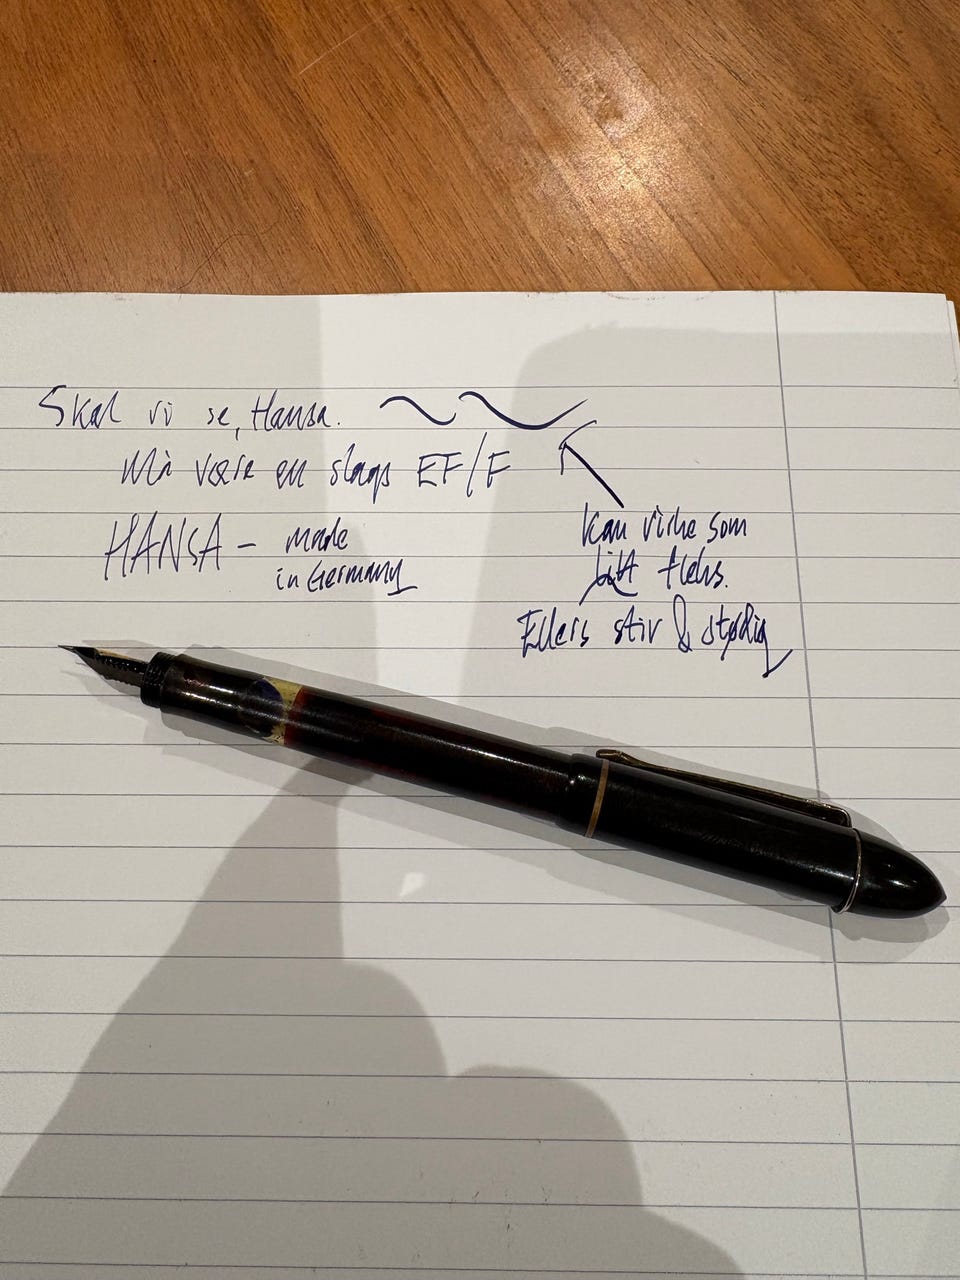 Skal vi se, Hansa.
Må være en slags EF/F
HANSA - made
in Germany
Kan virke som
litt fleks.
Ellers stiv & stødig